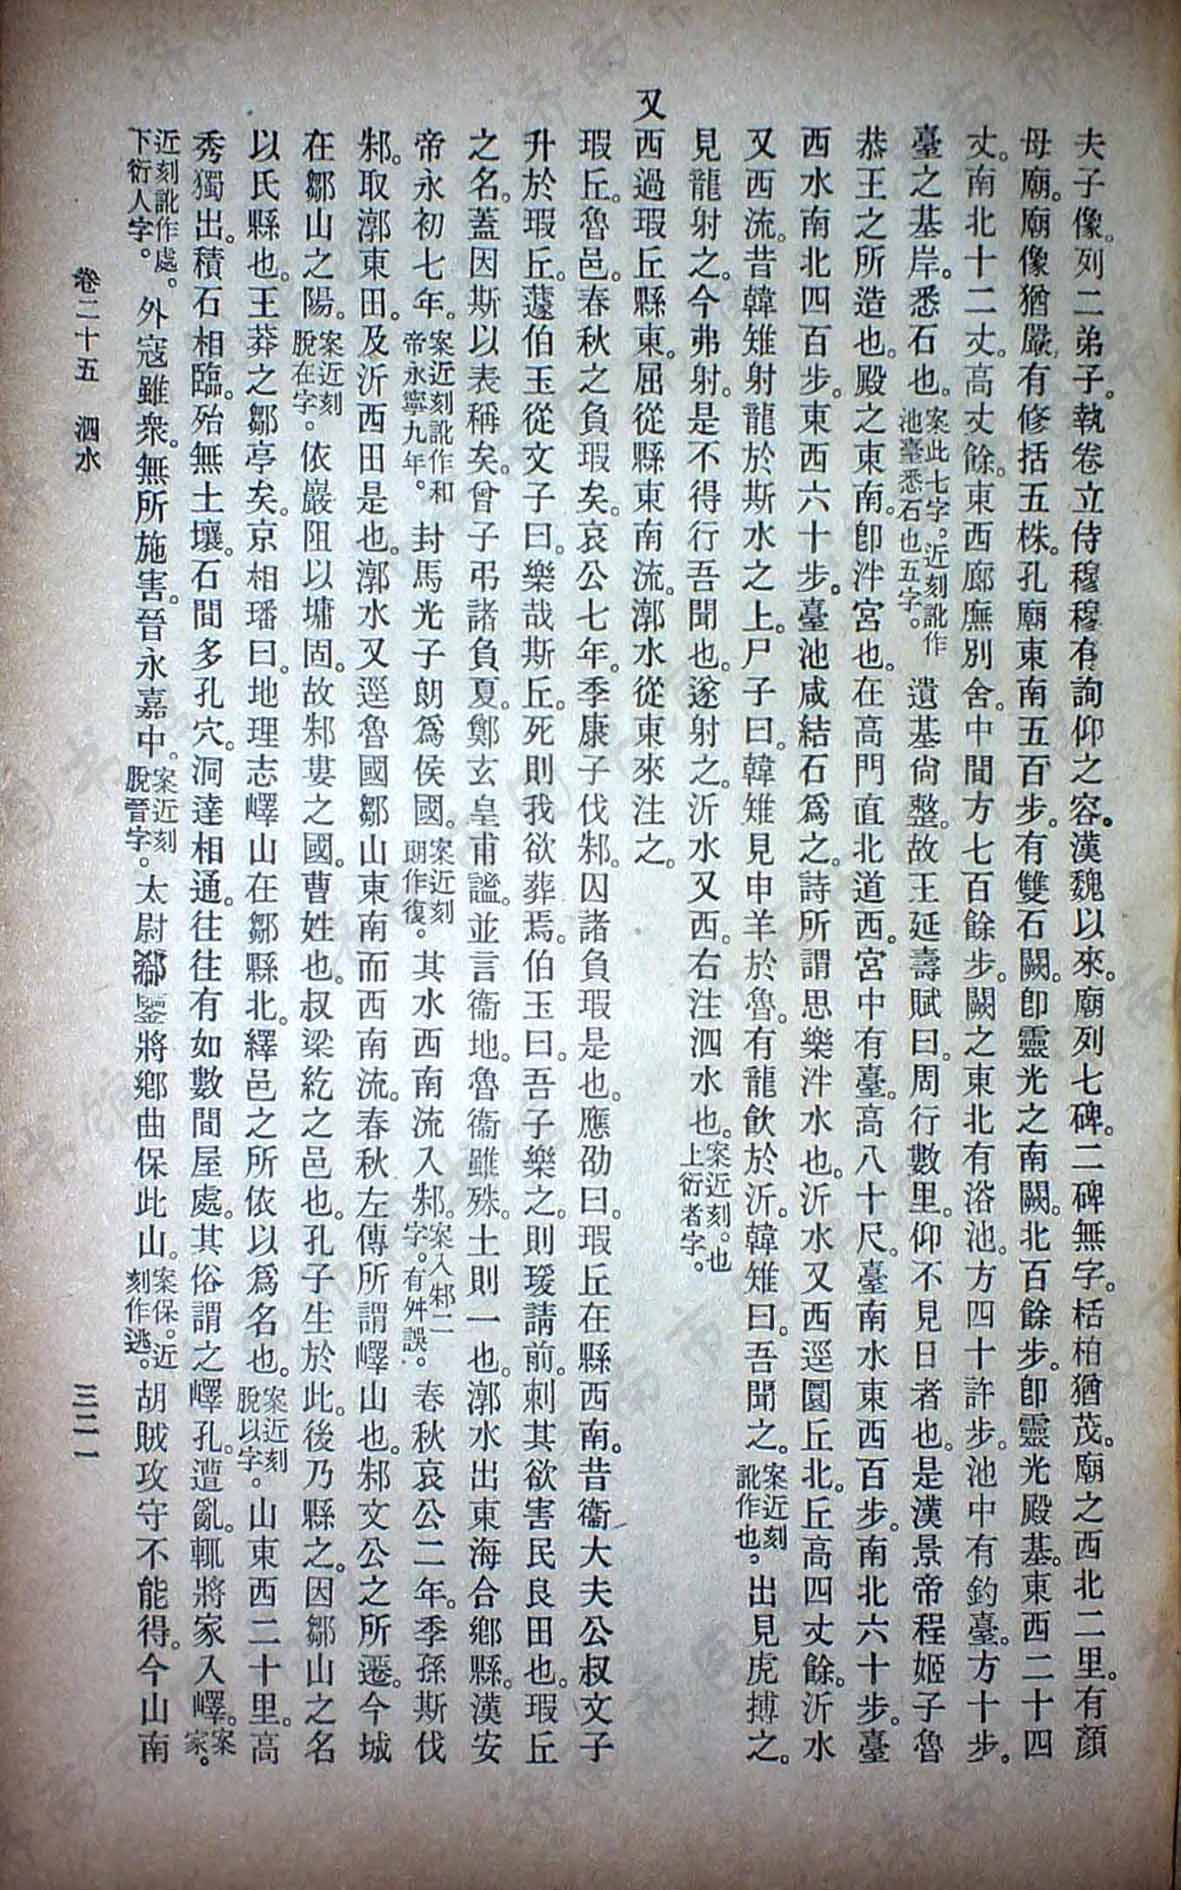 夫子像。列二弟子。執卷立侍穆穆有詢仰之容。漢魏以來。廟列七碑。二碑無字。栝柏猶茂。廟之西北二里。有顏
母廟。廟像猶嚴。有修括五株。孔廟東南五百步。有雙石闕。卽靈光之南闕。北百餘步。卽靈光殿基。東西二十四
丈。南北十二丈。高丈餘。東西廊廡別舍。中間方七百餘步。闕之東北有浴池。方四十許步。池中有釣臺。方十步。
臺之基岸。悉石也。案此七字。近刻訛作池臺悉石也五字。遺基尙整。故王延壽賦曰。周行數里。仰不見日者也。是漢景帝程姬子魯
恭王之所造也。殿之東南。卽泮宮也。在高門直北道西。宮中有臺。高八十尺。臺南水東西百步。南北六十步。臺
西水南北四百步。東西六十步。臺池咸結石爲之。詩所謂思樂泮水也。沂水又西逕圜丘北。丘高四丈餘。沂水
又西流。昔韓雉射龍於斯水之上。尸子曰。韓雉見申羊於魯。有龍飮於沂。韓雉曰。吾聞之。案近刻訛作也。出見虎搏之。
見龍射之。今弗射。是不得行吾聞也。遂射之。沂水又西。右注泗水也。案近刻。也上衍者字。
又西過瑕丘縣東。屈從縣東南流。漷水從東來注之。
瑕丘。魯邑。春秋之負瑕矣。哀公七年。季康子伐邾。囚諸負瑕是也。應劭曰。瑕丘在縣西南。昔衞大夫公叔文子
升於瑕丘。蘧伯玉從文子曰。樂哉斯丘。死則我欲葬焉。伯玉曰。吾子樂之。則瑗請前。刺其欲害民良田也。瑕丘
之名。蓋因斯以表稱矣。曾子弔諸負夏。鄭玄皇甫謐。並言衞地。魯衞雖殊。土則一也。漷水出東海合鄉縣。漢安
帝永初七年。案近刻訛作和帝永寧九年。封馬光子朗爲侯國。案近刻朗作復。其水西南流入邾。案入邾二字。有舛誤。春秋哀公二年。季孫斯伐
邾。取漷東田。及沂西田是也。漷水又逕魯國鄒山東南而西南流。春秋左傳所謂嶧山也。邾文公之所遷。今城
在鄒山之陽。案近刻脫在字。依巖阻以墉固。故邾婁之國。曹姓也。叔梁紇之邑也。孔子生於此。後乃縣之。因鄒山之名
以氏縣也。王莽之鄒亭矣。京相璠曰。地理志嶧山在鄒縣北。繹邑之所依以爲名也。案近刻脫以字。山東西二十里。高
秀獨出。積石相臨。殆無土壤。石間多孔穴。洞達相通。往往有如數間屋處。其俗謂之嶧孔。遭亂。輒將家入嶧。案家。
近刻訛作處。下衍人字。外寇雖衆。無所施害。晉永嘉中。案近刻脫晉字。太尉郗鑒將鄉曲保此山。案保。近刻作逃。胡賊攻守不能得。今山南
卷二十五 泗水 三二一